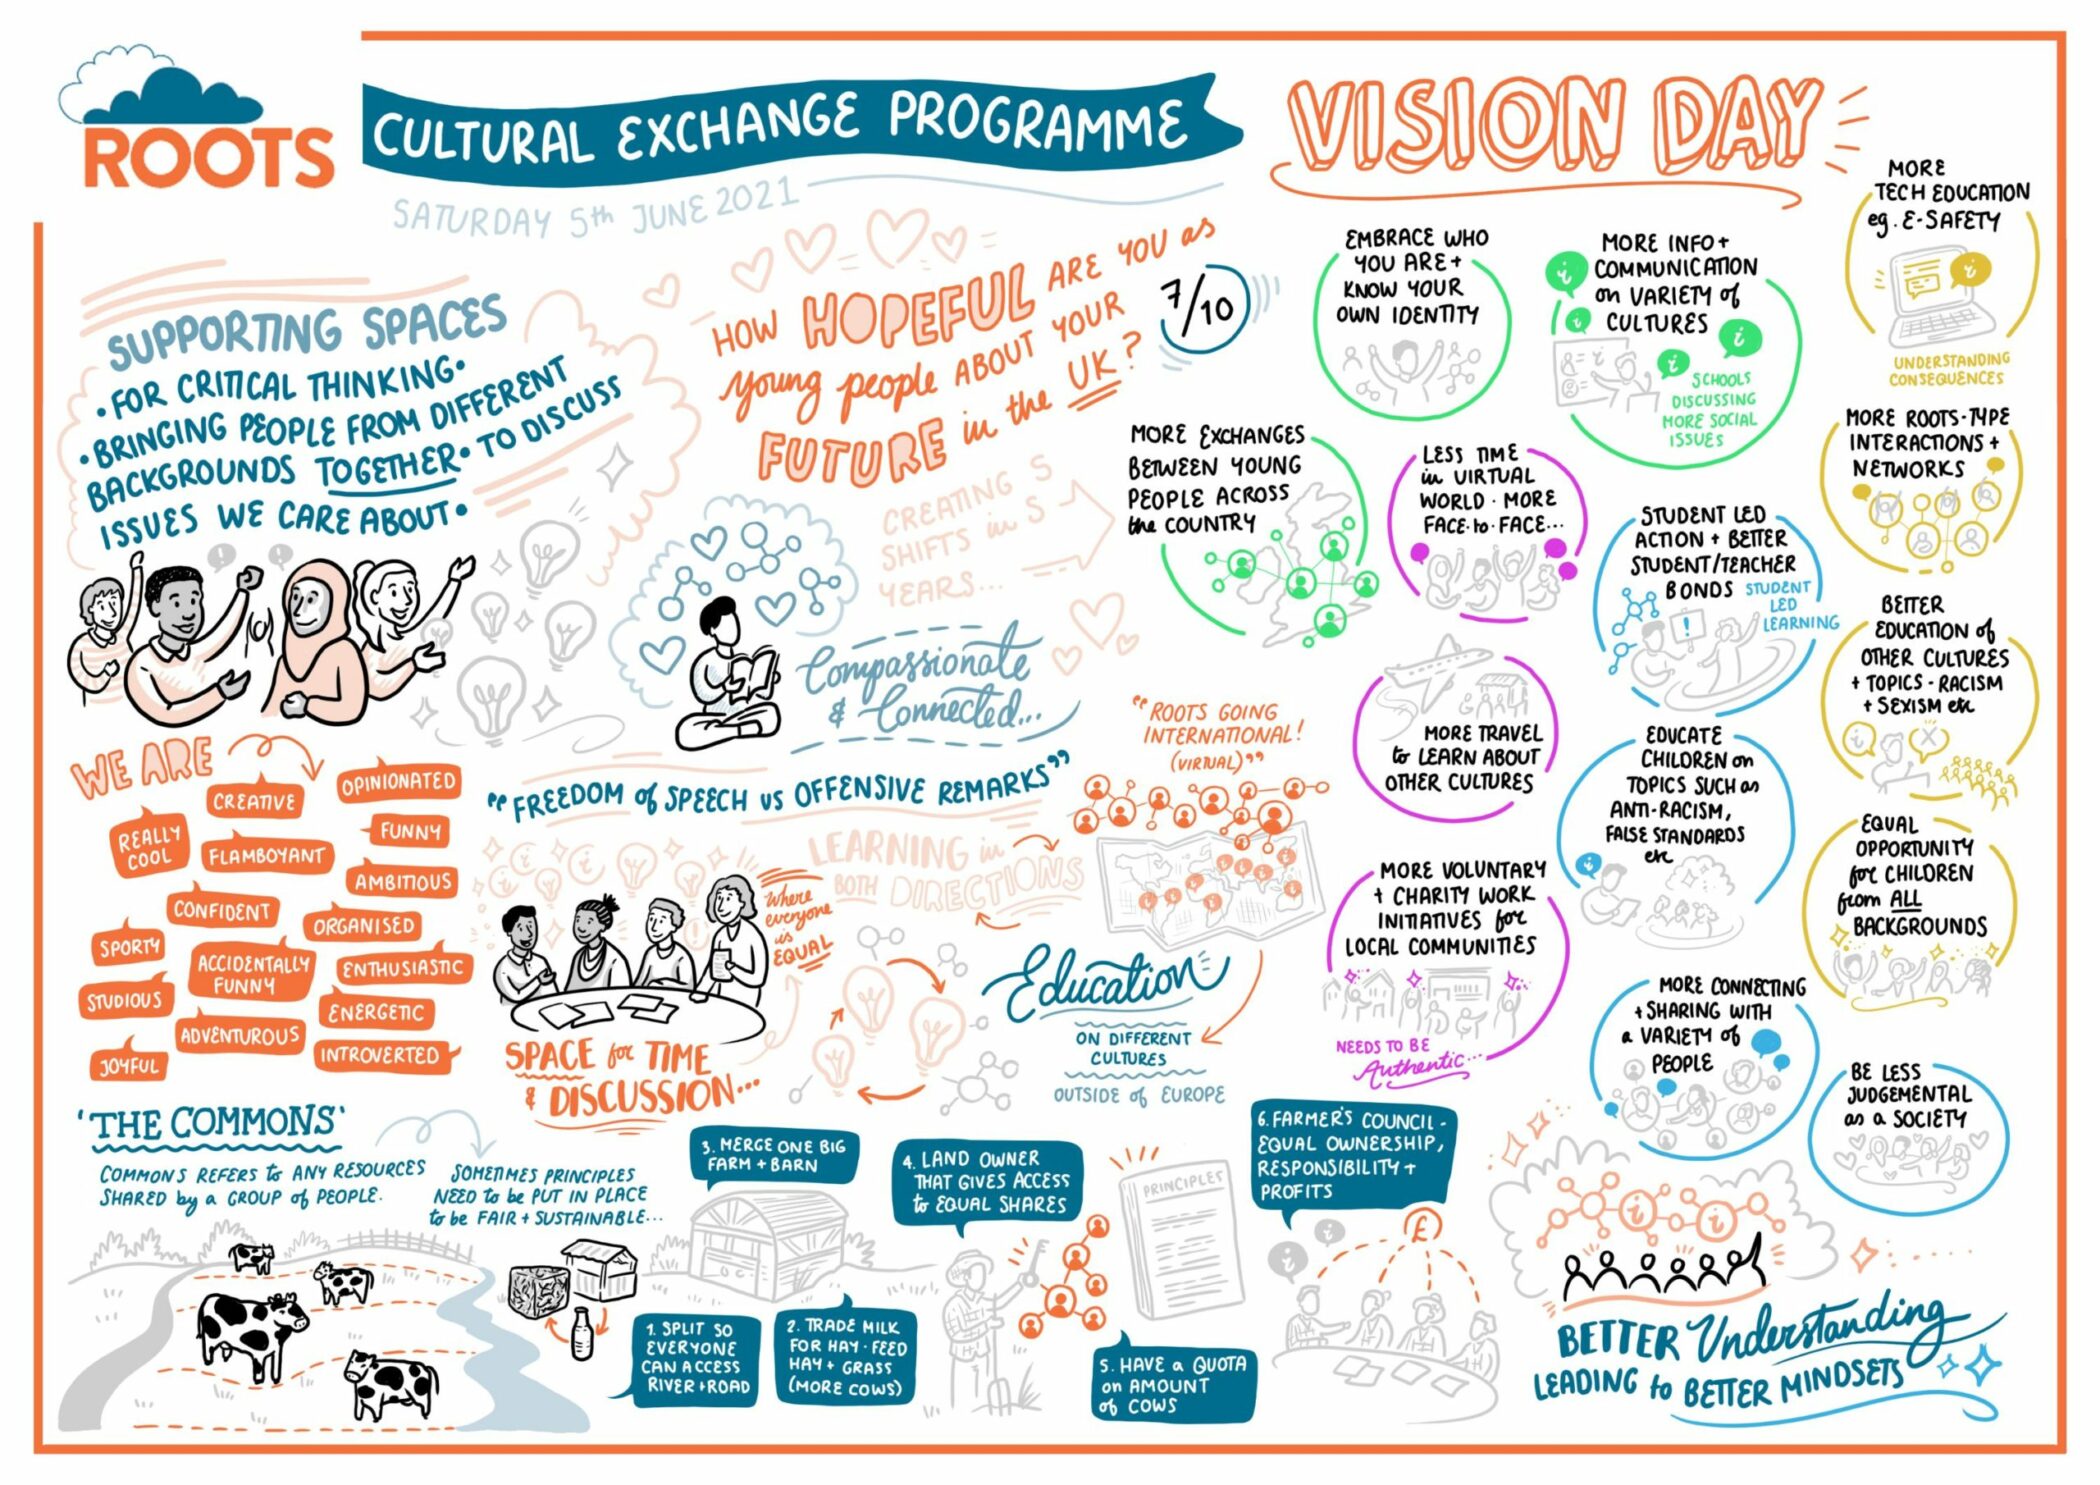 ROOTS
CULTURAL EXCHANGE PROGRAMME
SATURDAY 5th JUNE 2021
VISION DAY
SUPPORTING SPACES
• FOR CRITICAL THINKING •
• BRINGING PEOPLE FROM DIFFERENT
BACKGROUNDS TOGETHER • TO DISCUSS
ISSUES WE CARE ABOUT •
HOW HOPEFUL ARE YOU as
young people ABOUT YOUR
FUTURE in the UK?
7/10
CREATING 5
SHIFTS in 5
YEARS...
Compassionate
& Connected...
WE ARE
CREATIVE
OPINIONATED
REALLY
COOL
FLAMBOYANT
FUNNY
AMBITIOUS
CONFIDENT
ORGANISED
SPORTY
ACCIDENTALLY
FUNNY
ENTHUSIASTIC
STUDIOUS
ENERGETIC
ADVENTUROUS
JOYFUL
INTROVERTED
"FREEDOM of SPEECH vs OFFENSIVE REMARKS"
LEARNING in
BOTH DIRECTIONS
Where
everyone
is
EQUAL
SPACE for TIME
& DISCUSSION...
"ROOTS GOING
INTERNATIONAL!
(VIRTUAL)"
Education
ON DIFFERENT
CULTURES
OUTSIDE of EUROPE
'THE COMMONS'
COMMONS REFERS to ANY RESOURCES
SHARED by a GROUP of PEOPLE.
SOMETIMES PRINCIPLES
NEED to be PUT IN PLACE
to be FAIR + SUSTAINABLE...
1. SPLIT SO
EVERYONE
CAN ACCESS
RIVER + ROAD
2. TRADE MILK
FOR HAY · FEED
HAY + GRASS
(MORE COWS)
3. MERGE ONE BIG
FARM + BARN
4. LAND OWNER
THAT GIVES ACCESS
to EQUAL SHARES
PRINCIPLES
5. HAVE a QUOTA
on AMOUNT
of COWS
6. FARMER'S COUNCIL -
EQUAL OWNERSHIP,
RESPONSIBILITY +
PROFITS
£
EMBRACE WHO
YOU ARE +
KNOW YOUR
OWN IDENTITY
MORE INFO +
COMMUNICATION
on VARIETY of
CULTURES
SCHOOLS
DISCUSSING
MORE SOCIAL
ISSUES
MORE EXCHANGES
BETWEEN YOUNG
PEOPLE ACROSS
the COUNTRY
LESS TIME
in VIRTUAL
WORLD · MORE
FACE·to·FACE...
MORE TRAVEL
to LEARN ABOUT
OTHER CULTURES
MORE VOLUNTARY
+ CHARITY WORK
INITIATIVES for
LOCAL COMMUNITIES
NEEDS TO BE
Authentic...
STUDENT LED
ACTION + BETTER
STUDENT/TEACHER
BONDS
STUDENT
LED
LEARNING
EDUCATE
CHILDREN on
TOPICS SUCH as
ANTI-RACISM,
FALSE STANDARDS
etc
MORE CONNECTING
+ SHARING WITH
a VARIETY of
PEOPLE
MORE
TECH EDUCATION
eg. E-SAFETY
UNDERSTANDING
CONSEQUENCES
MORE ROOTS-TYPE
INTERACTIONS +
NETWORKS
BETTER
EDUCATION of
OTHER CULTURES
+ TOPICS - RACISM
+ SEXISM etc
EQUAL
OPPORTUNITY
for CHILDREN
from ALL
BACKGROUNDS
BE LESS
JUDGEMENTAL
as a SOCIETY
BETTER Understanding
LEADING to BETTER MINDSETS